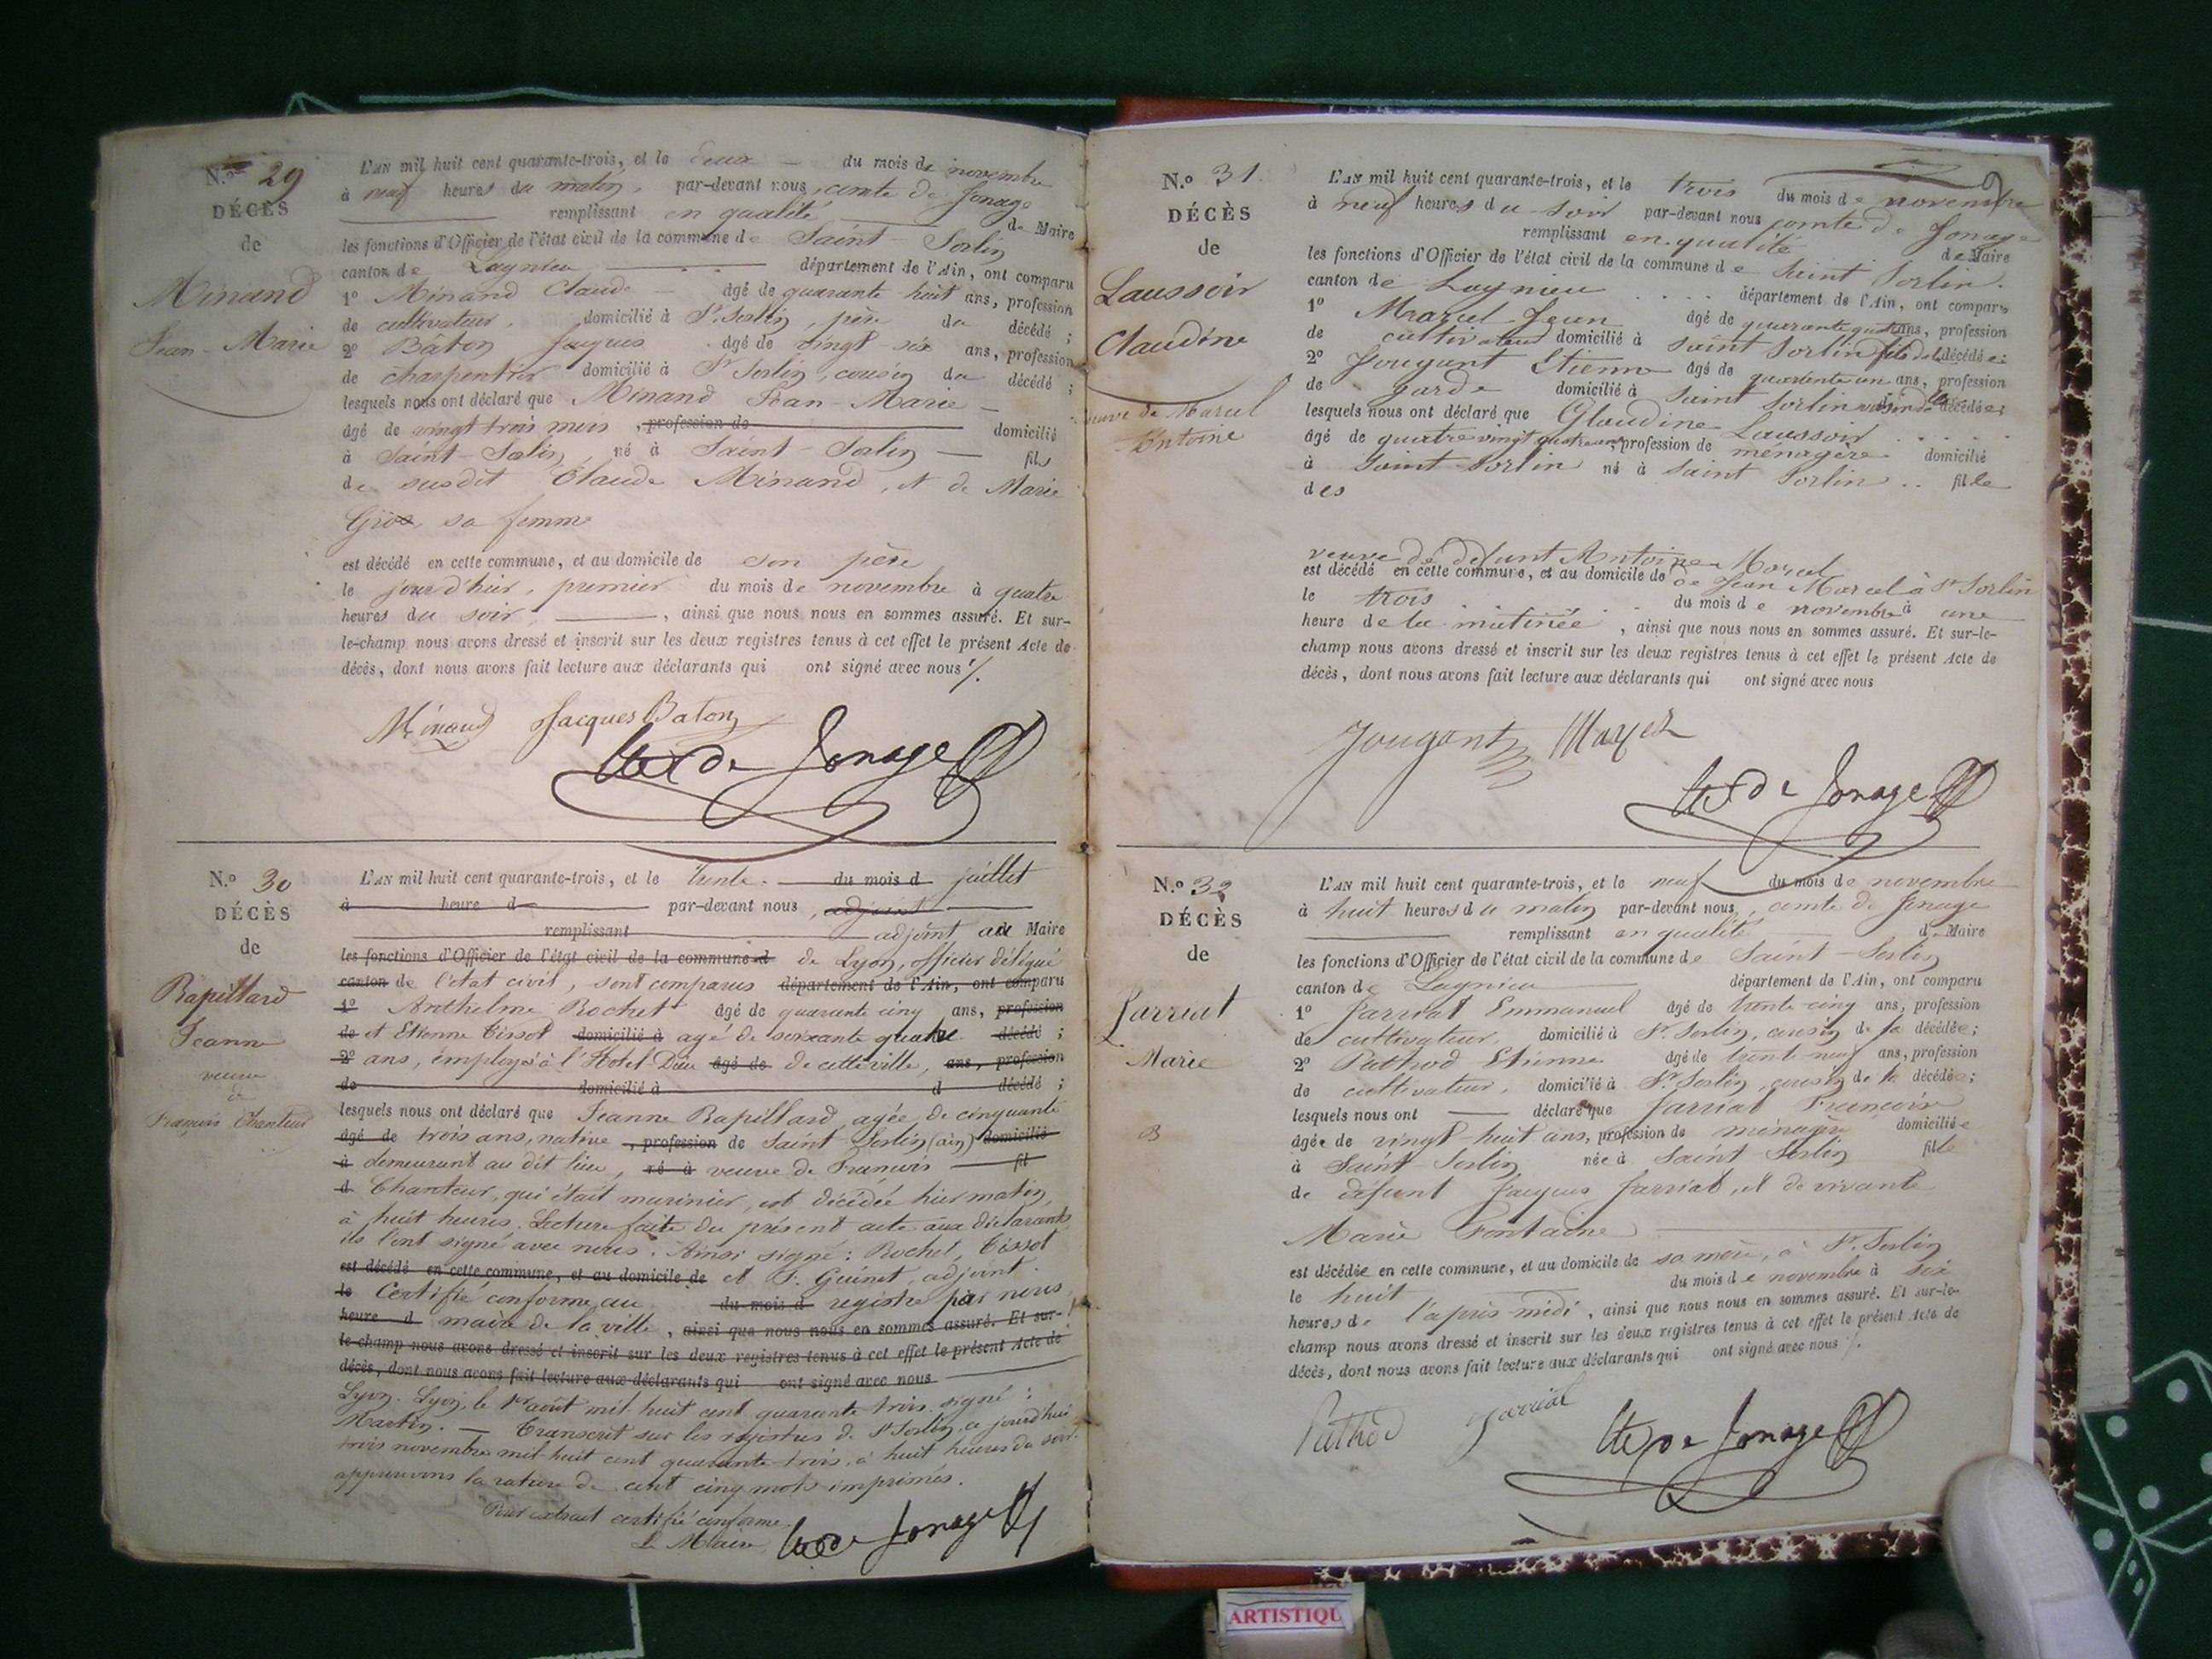 N.º 29
DÉCÈS
de
Minand
Jean-Marie
L'AN mil huit cent quarante-trois, et le deux du mois de novembre
à neuf heures du matin, par-devant nous, comte de Jonage
remplissant en qualité de Maire
les fonctions d'Officier de l'état civil de la commune de Saint-Sorlin
canton de Lagnieu département de l'Ain, ont comparu
1º Minand Claude âgé de quarante huit ans, profession
de cultivateur, domicilié à St. Sorlin, père du décédé;
2º Bâton Jacques âgé de vingt-six ans, profession
de charpentier domicilié à St Sorlin, cousin du décédé;
lesquels nous ont déclaré que Minand Jean-Marie
âgé de vingt trois mois, profession de domicilié
à Saint-Sorlin, né à Saint-Sorlin fils
de susdit Claude Minand, et de Marie
Gros, sa femme
est décédé en cette commune, et au domicile de son père
le jour d'hier, premier du mois de novembre à quatre
heures du soir, ainsi que nous nous en sommes assuré. Et sur-
le-champ nous avons dressé et inscrit sur les deux registres tenus à cet effet le présent Acte de
décès, dont nous avons fait lecture aux déclarants qui ont signé avec nous /.
Minand Jacques Baton
Cte de Jonage
N.º 30
DÉCÈS
de
Bapillard
Jeanne
veuve
de
François Chanteur
L'AN mil huit cent quarante-trois, et le trente du mois d juillet
à heure d par-devant nous, adjoint
remplissant adjoint au Maire
les fonctions d'Officier de l'état civil de la commune d de Lyon, officier délégué
canton de l'état civil, sont comparus département de l'Ain, ont comparu
1º Anthelme Rochet âgé de quarante cinq ans, profession
de et Etienne Tissot domicilié à agé de soixante quatre décédé;
2º ans, employés à l'Hotel-Dieu âgé de de cette ville, ans, profession
de domicilié à d décédé;
lesquels nous ont déclaré que Jeanne Bapillard, agée de cinquante
âgé de trois ans, native, profession de Saint-Sorlin (ain) domicilié
à demeurant au dit lieu, né à veuve de François fil
d Chanteur, qui était marinier, est décédée hier matin,
à huit heures. Lecture faite du présent acte aux déclarants,
ils l'ont signé avec nous. Ainsi signé: Rochet, Tissot
est décédé en cette commune, et au domicile de et F. Guinet, adjoint.
le Certifié conforme au du mois d registre par nous
heure d maire de la ville, ainsi que nous nous en sommes assuré. Et sur-
le-champ nous avons dressé et inscrit sur les deux registres tenus à cet effet le présent Acte de
décès, dont nous avons fait lecture aux déclarants qui ont signé avec nous
Lyon. Lyon, le 1er août mil huit cent quarante trois. signé:
Martin. — Transcrit sur les registres de St Sorlin, ce jourd'hui
trois novembre mil-huit cent quarante-trois, à huit heures du soir.
approuvons la rature de cent cinq mots imprimés.
Pour extrait certifié conforme
Le Maire Cte de Jonage
N.º 31
DÉCÈS
de
Laussoir
Claudine
veuve de Marcel
Antoine
L'AN mil huit cent quarante-trois, et le trois du mois de novembre
à neuf heures du soir par-devant nous comte de Jonage
remplissant en qualité de Maire
les fonctions d'Officier de l'état civil de la commune de Saint Sorlin.
canton de Lagnieu département de l'Ain, ont comparu
1º Marcel Jean âgé de quarante quatre ans, profession
de cultivateur domicilié à Saint Sorlin fils de la décédée;
2º Jougant Etienne âgé de quarante un ans, profession
de garde domicilié à Saint Sorlin voisin de la décédée;
lesquels nous ont déclaré que Glaudine Laussoir
âgé de quatre vingt quatre ans, profession de menagère domicilié
à Saint-Sorlin né à Saint Sorlin fille
des
veuve de défunt Antoine Marcel
est décédé en cette commune, et au domicile de de Jean Marcel à St Sorlin
le trois du mois de novembre à une
heure de la matinée, ainsi que nous nous en sommes assuré. Et sur-le-
champ nous avons dressé et inscrit sur les deux registres tenus à cet effet le présent Acte de
décès, dont nous avons fait lecture aux déclarants qui ont signé avec nous
Jougant Marcel
Cte de Jonage
N.º 32
DÉCÈS
de
Jarriat
Marie
B
L'AN mil huit cent quarante-trois, et le neuf du mois de novembre
à huit heures du matin par-devant nous, comte de Jonage
remplissant en qualité de Maire
les fonctions d'Officier de l'état civil de la commune de Saint-Sorlin
canton de Lagnieu département de l'Ain, ont comparu
1º Jarriat Emmanuel âgé de trente-cinq ans, profession
de cultivateur, domicilié à St. Sorlin, cousin de la décédée;
2º Pathod Etienne âgé de trente-neuf ans, profession
de cultivateur, domicilié à St. Sorlin, cousin de la décédée;
lesquels nous ont déclaré que Jarriat Françoise
âgée de vingt-huit ans, profession de ménagère domiciliée
à Saint-Sorlin née à Saint-Sorlin fille
de défunt Jacques Jarriat, et de vivante
Marie Fontaine
est décédée en cette commune, et au domicile de sa mère, à St. Sorlin
le huit du mois de novembre à six
heures de l'après-midi, ainsi que nous nous en sommes assuré. Et sur-le-
champ nous avons dressé et inscrit sur les deux registres tenus à cet effet le présent Acte de
décès, dont nous avons fait lecture aux déclarants qui ont signé avec nous /.
Pathod Jarriat
Cte de Jonage
ARTISTIQU